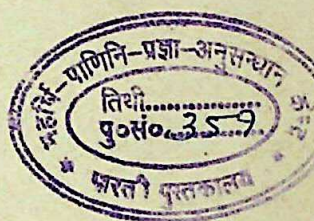 महर्षि-पाणिनि-प्रज्ञा-अनुसन्धान केन्द्र
तिथी..............
पु०सं०..359
* भारती पुस्तकालय *